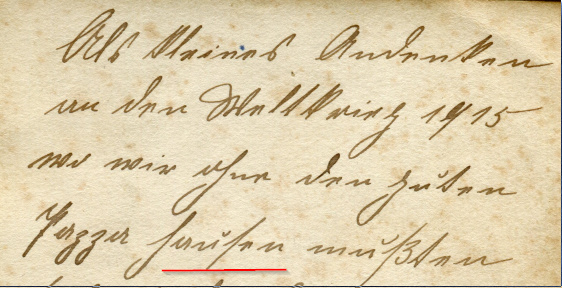 Als kleines Andenken
an den Weltkrieg 1915
wo wir ohne den guten
Pazza hausen mußten